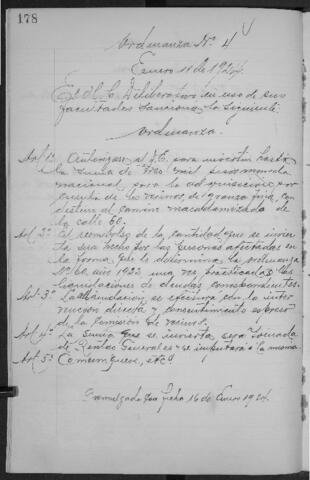 178
Ordenanza No. 4
Enero 11 de 1924.
El H. C. Deliberativo en uso de sus
facultades sanciona la siguiente
Ordenanza.
Art. 1º. Autorízase al J.C. para invertir hasta
la suma de tres mil pesos moneda
nacional, para la adquisición por
cuenta de los vecinos de granza fija, con
destino al camino macadamizado de
la calle 60.
Art. 2º. El reembolso de la cantidad que se invierta
será hecho por las personas afectadas en
la forma que lo determina la ordenanza
Nº 60 año 1922 una vez practicadas las
liquidaciones de deudas correspondientes.
Art. 3º. La administración se efectuará con la intervención
directa y consentimiento expreso
de la Comisión de vecinos.
Art. 4º. La suma que se invierta será tomada
de Rentas Generales y se imputará a la misma.
Art. 5º. Comuníquese, etc.
Promulgada con fecha 16 de Enero 1924.